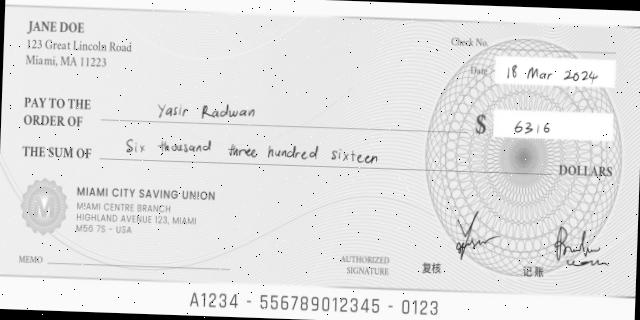 JANE DOE
123 Great Lincoln Road
Miami, MA 11223
Check No.
Date
18 Mar 2024
PAY TO THE
ORDER OF
Yasir Radwan
$ 6316
THE SUM OF
Six thousand three hundred sixteen
DOLLARS
M
MIAMI CITY SAVING UNION
MIAMI CENTRE BRANCH
HIGHLAND AVENUE 123, MIAMI
M56 7S - USA
MEMO
AUTHORIZED
SIGNATURE
复核
记账
A1234 - 556789012345 - 0123